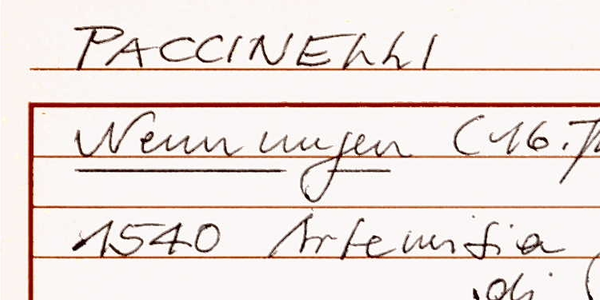 PACCINELLI
Nennungen (16.
1540 Artemisia
di (